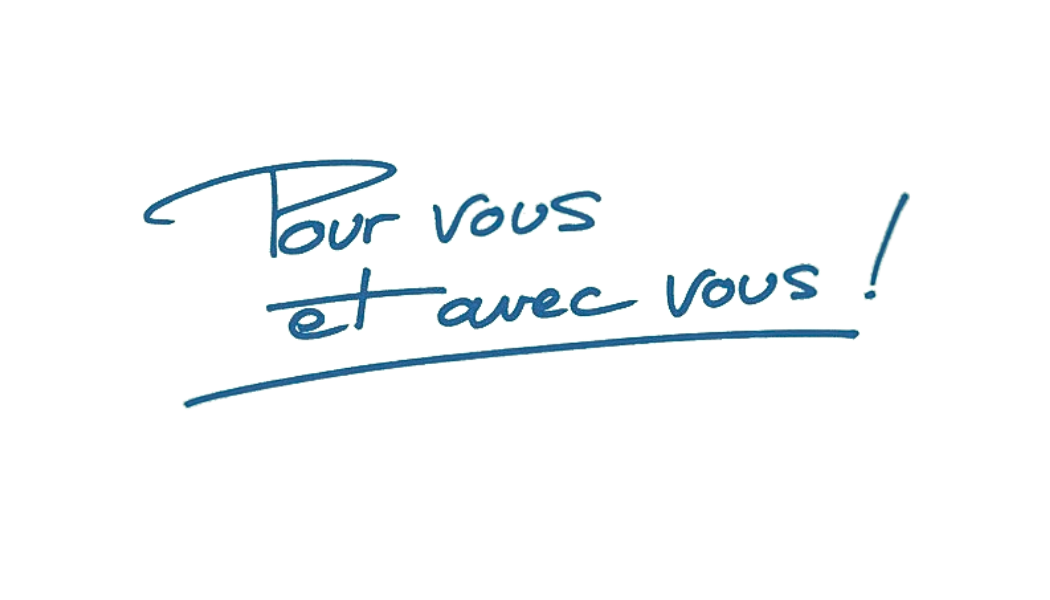 Pour vous
et avec vous !